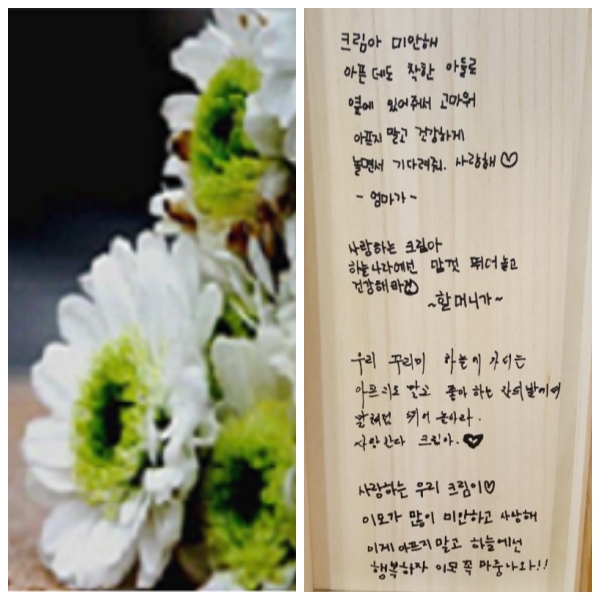 크림아 미안해
아픈데도 착한 아들로
옆에 있어줘서 고마워
아프지 말고 건강하게
놀면서 기다려줘. 사랑해♡
- 엄마가 -
사랑하는 크림아
하늘나라에선 맘껏 뛰어놀고
건강해
~할머니가~
우리 꾸리미 하늘에 가서는
아프지도 말고 좋아하는
뛰어 놀아라.
사랑한다 크림아. ♥
사랑하는 우리 크림이♡
이모가 많이 미안하고 사랑해
이제 아프지 말고 하늘에선
행복하자 이모 꼭 마중나와!!